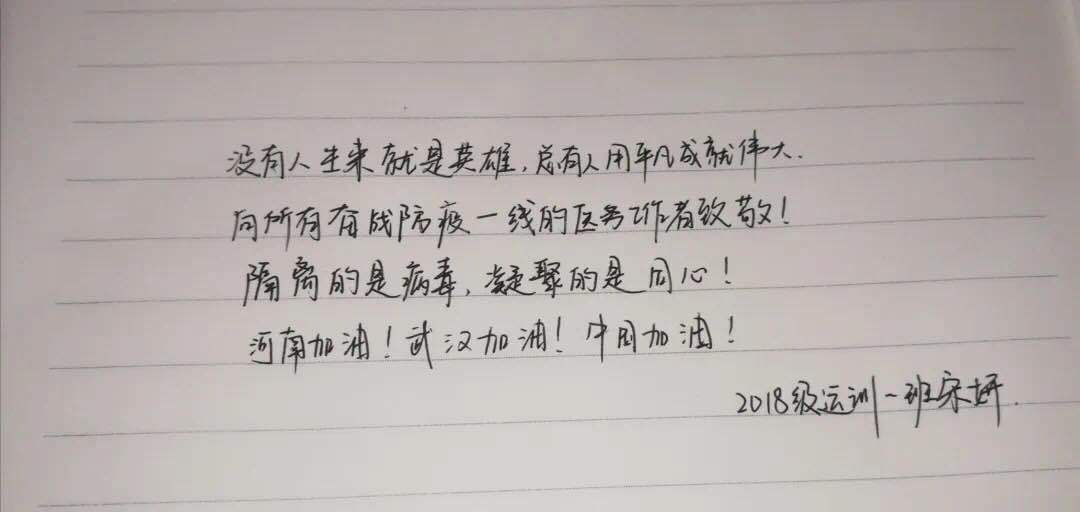 没有人生来就是英雄，总有人用平凡成就伟大．
向所有奋战防疫一线的医务工作者致敬！
隔离的是病毒，凝聚的是同心！
河南加油！武汉加油！中国加油！
2018级运训一班宋妍．